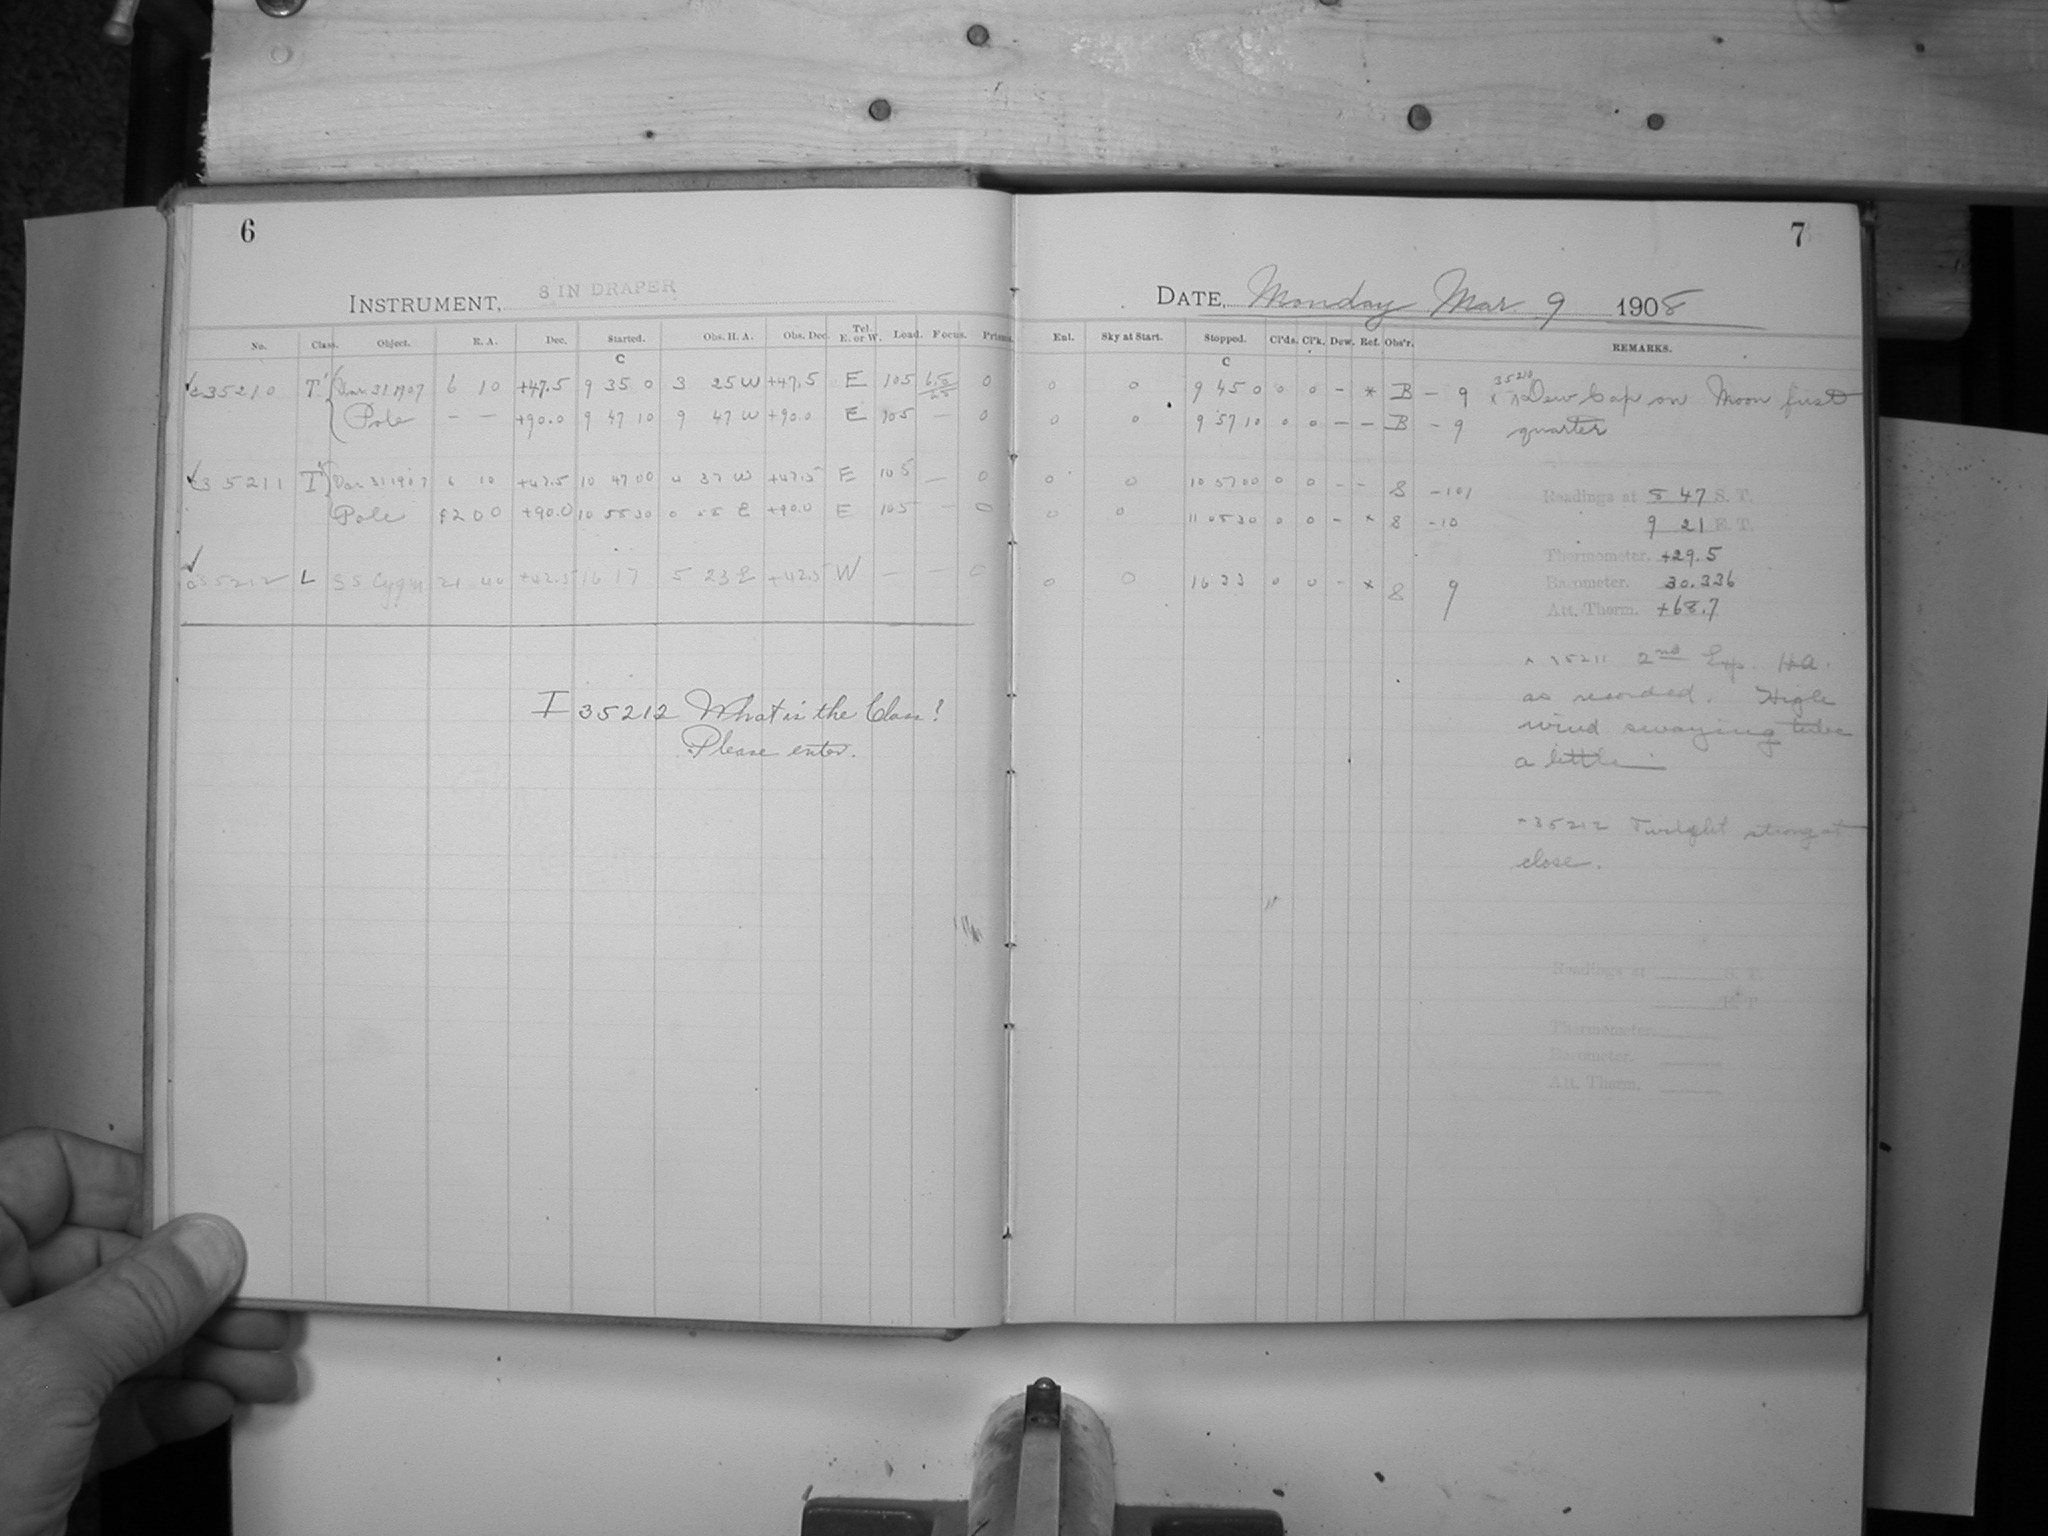 6
INSTRUMENT, 8 IN DRAPER
No. Class. Object. R. A. Dec. Started. Obs. H. A. Obs. Dec. Tel. E. or W. Load. Focus. Prisms.
C
35210 T' Var 31 1907 6 10 +47.5 9 35 0 3 25 W +47.5 E 105 0
Pole — — +90.0 9 47 10 9 47 W +90.0 E 105 — 0
35211 T' Var 31 1907 6 10 +47.5 10 47 00 4 37 W +47.5 E 105 — 0
Pole 00 +90.0 10 55 30 E +90.0 E 105 — 0
35212 L SS Cygni 21 40 +42.5 16 17 5 23 E +42.5 W — — 0
I 35212 What is the Class?
Please enter.
7
DATE, Monday Mar. 9 1908
Enl. Sky at Start. Stopped. Cl'ds. Cl'k. Dew. Ref. Obs'r. REMARKS.
C
0 0 9 45 0 0 0 - * B - 9 35210 Dew Cap on Moon first
0 0 9 57 10 0 0 — — B - 9 quarter
0 0 10 57 00 0 0 - - S
0 0 11 05 30 0 0 - * S -10
0 0 16 33 0 0 - * S 9
Readings at 5 47 S. T.
9 21 E. T.
Thermometer. +29.5
Barometer. 30.336
Att. Therm. +68.7
* 35211 2nd Exp. H.A.
as recorded. High
wind swaying tube
a little
* 35212 Twilight strong at
close.
Readings at S. T.
E. T.
Thermometer.
Barometer.
Att. Therm.